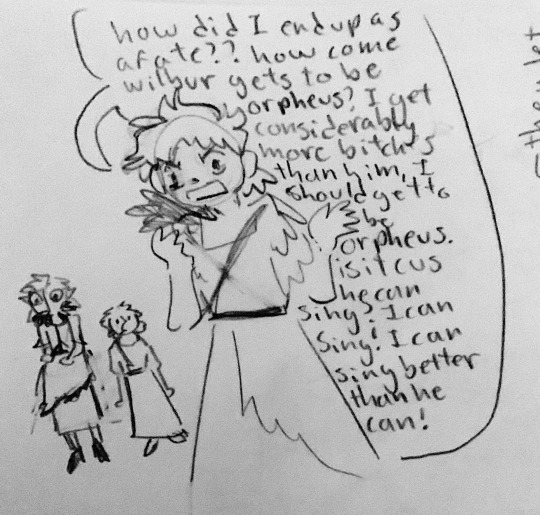 how did I end up as
a fate?? how come
wilbur gets to be
orpheus? I get
considerably
more bitch's
than him, I
should get to
be
orpheus.
is it cus
he can
sing? I can
sing! I can
sing better
than he
can!